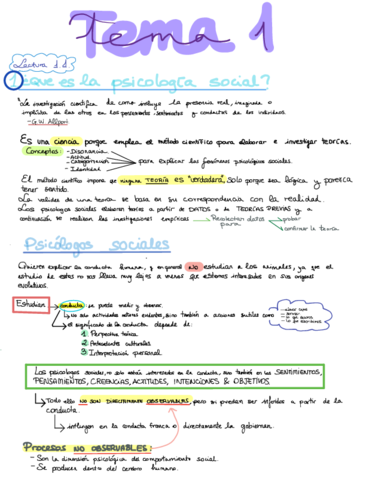 Tema 1
Lectura 1.1
1 ¿Que es la psicología social?
"La investigación científica de como influye la presencia real, imaginada o
implícita de los otros en los pensamientos, sentimientos y conductas de los individuos.
- G.W. Allport
Es una ciencia porque emplea el método científico para elaborar e investigar teorías.
Conceptos:
- Disonancia
- Actitud
- Categorización
- Identidad
para explicar los fenómenos psicológicos sociales.
El método científico impone de ninguna TEORÍA es "verdadera", solo porque sea lógica y parezca
tener sentido.
La validez de una teoría se basa en su correspondencia con la realidad.
Los psicólogos sociales elaboran teorías a partir de DATOS o de TEORÍAS PREVIAS y, a
continuación se realizan las investigaciones empíricas
Recolectan datos para
probar
confirmar la teoría
Psicólogos sociales
Quieren explicar la conducta humana, y en general NO estudian a los animales, ya que el
estudio de estos no nos lleva muy lejos a menos que estemos interesados en sus orígenes
evolutivos.
Estudian
conducta: se puede medir y observar.
No solo actividades motoras evidentes, sino también a acciones sutiles como
- sonreír
el significado de la conducta depende de:
1 Perspectiva teórica
2 Antecedentes culturales
3 Interpretación personal
Los psicólogos sociales, no solo están interesados en la conducta, sino también en los SENTIMIENTOS,
PENSAMIENTOS, CREENCIAS, ACTITUDES, INTENCIONES & OBJETIVOS.
Todo ello NO SON DIRECTAMENTE OBSERVABLES, pero si pueden ser inferidos a partir de la
conducta.
influyen en la conducta franca o directamente la gobiernan.
PROCESOS NO OBSERVABLES:
- Son la dimensión psicológica del comportamiento social.
- Se producen dentro del cerebro humano.